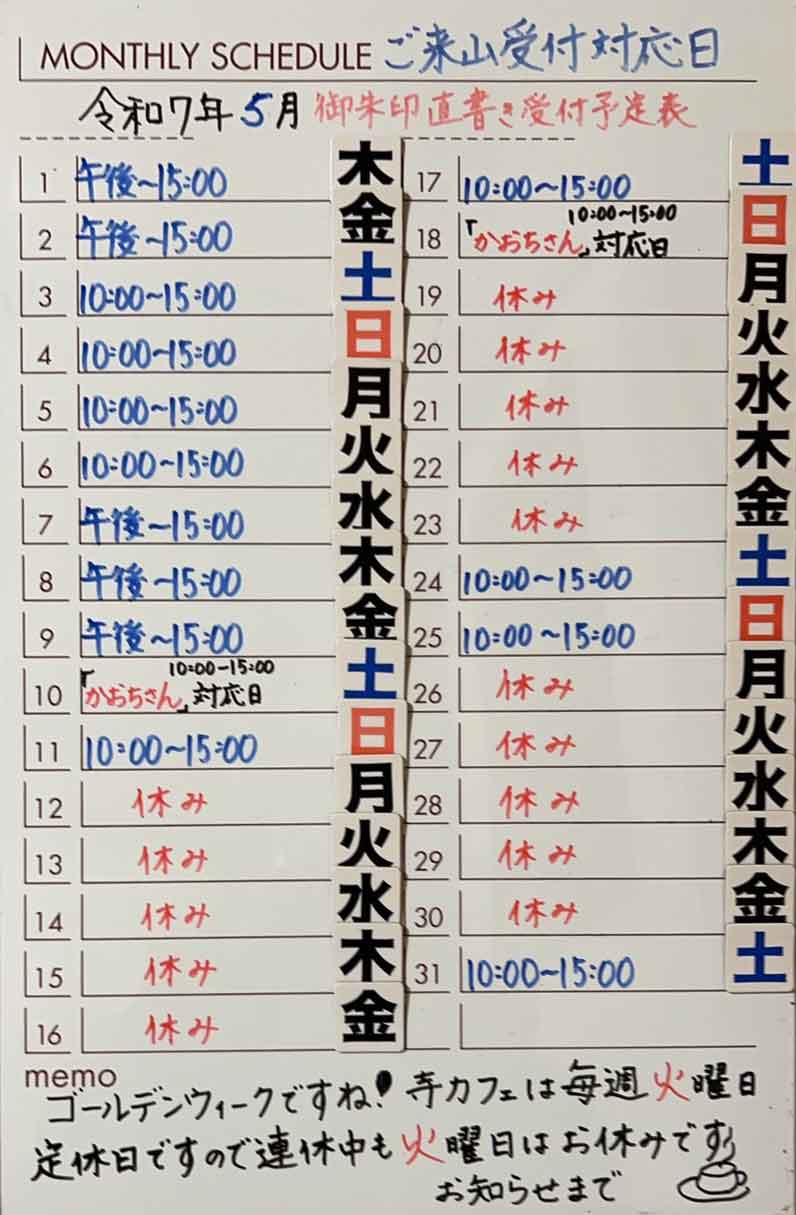 MONTHLY SCHEDULE ご来山受付対応日
令和7年5月 御朱印直書き受付予定表
1 午後~15:00 木
2 午後~15:00 金
3 10:00~15:00 土
4 10:00~15:00 日
5 10:00~15:00 月
6 10:00~15:00 火
7 午後~15:00 水
8 午後~15:00 木
9 午後~15:00 金
10:00~15:00
10 「かおちさん」対応日 土
11 10:00~15:00 日
12 休み 月
13 休み 火
14 休み 水
15 休み 木
16 休み 金
17 10:00~15:00 土
10:00~15:00
18 「かおちさん」対応日 日
19 休み 月
20 休み 火
21 休み 水
22 休み 木
23 休み 金
24 10:00~15:00 土
25 10:00~15:00 日
26 休み 月
27 休み 火
28 休み 水
29 休み 木
30 休み 金
31 10:00~15:00 土
memo
ゴールデンウィークですね! 寺カフェは毎週火曜日
定休日ですので連休中も火曜日はお休みです
お知らせまで